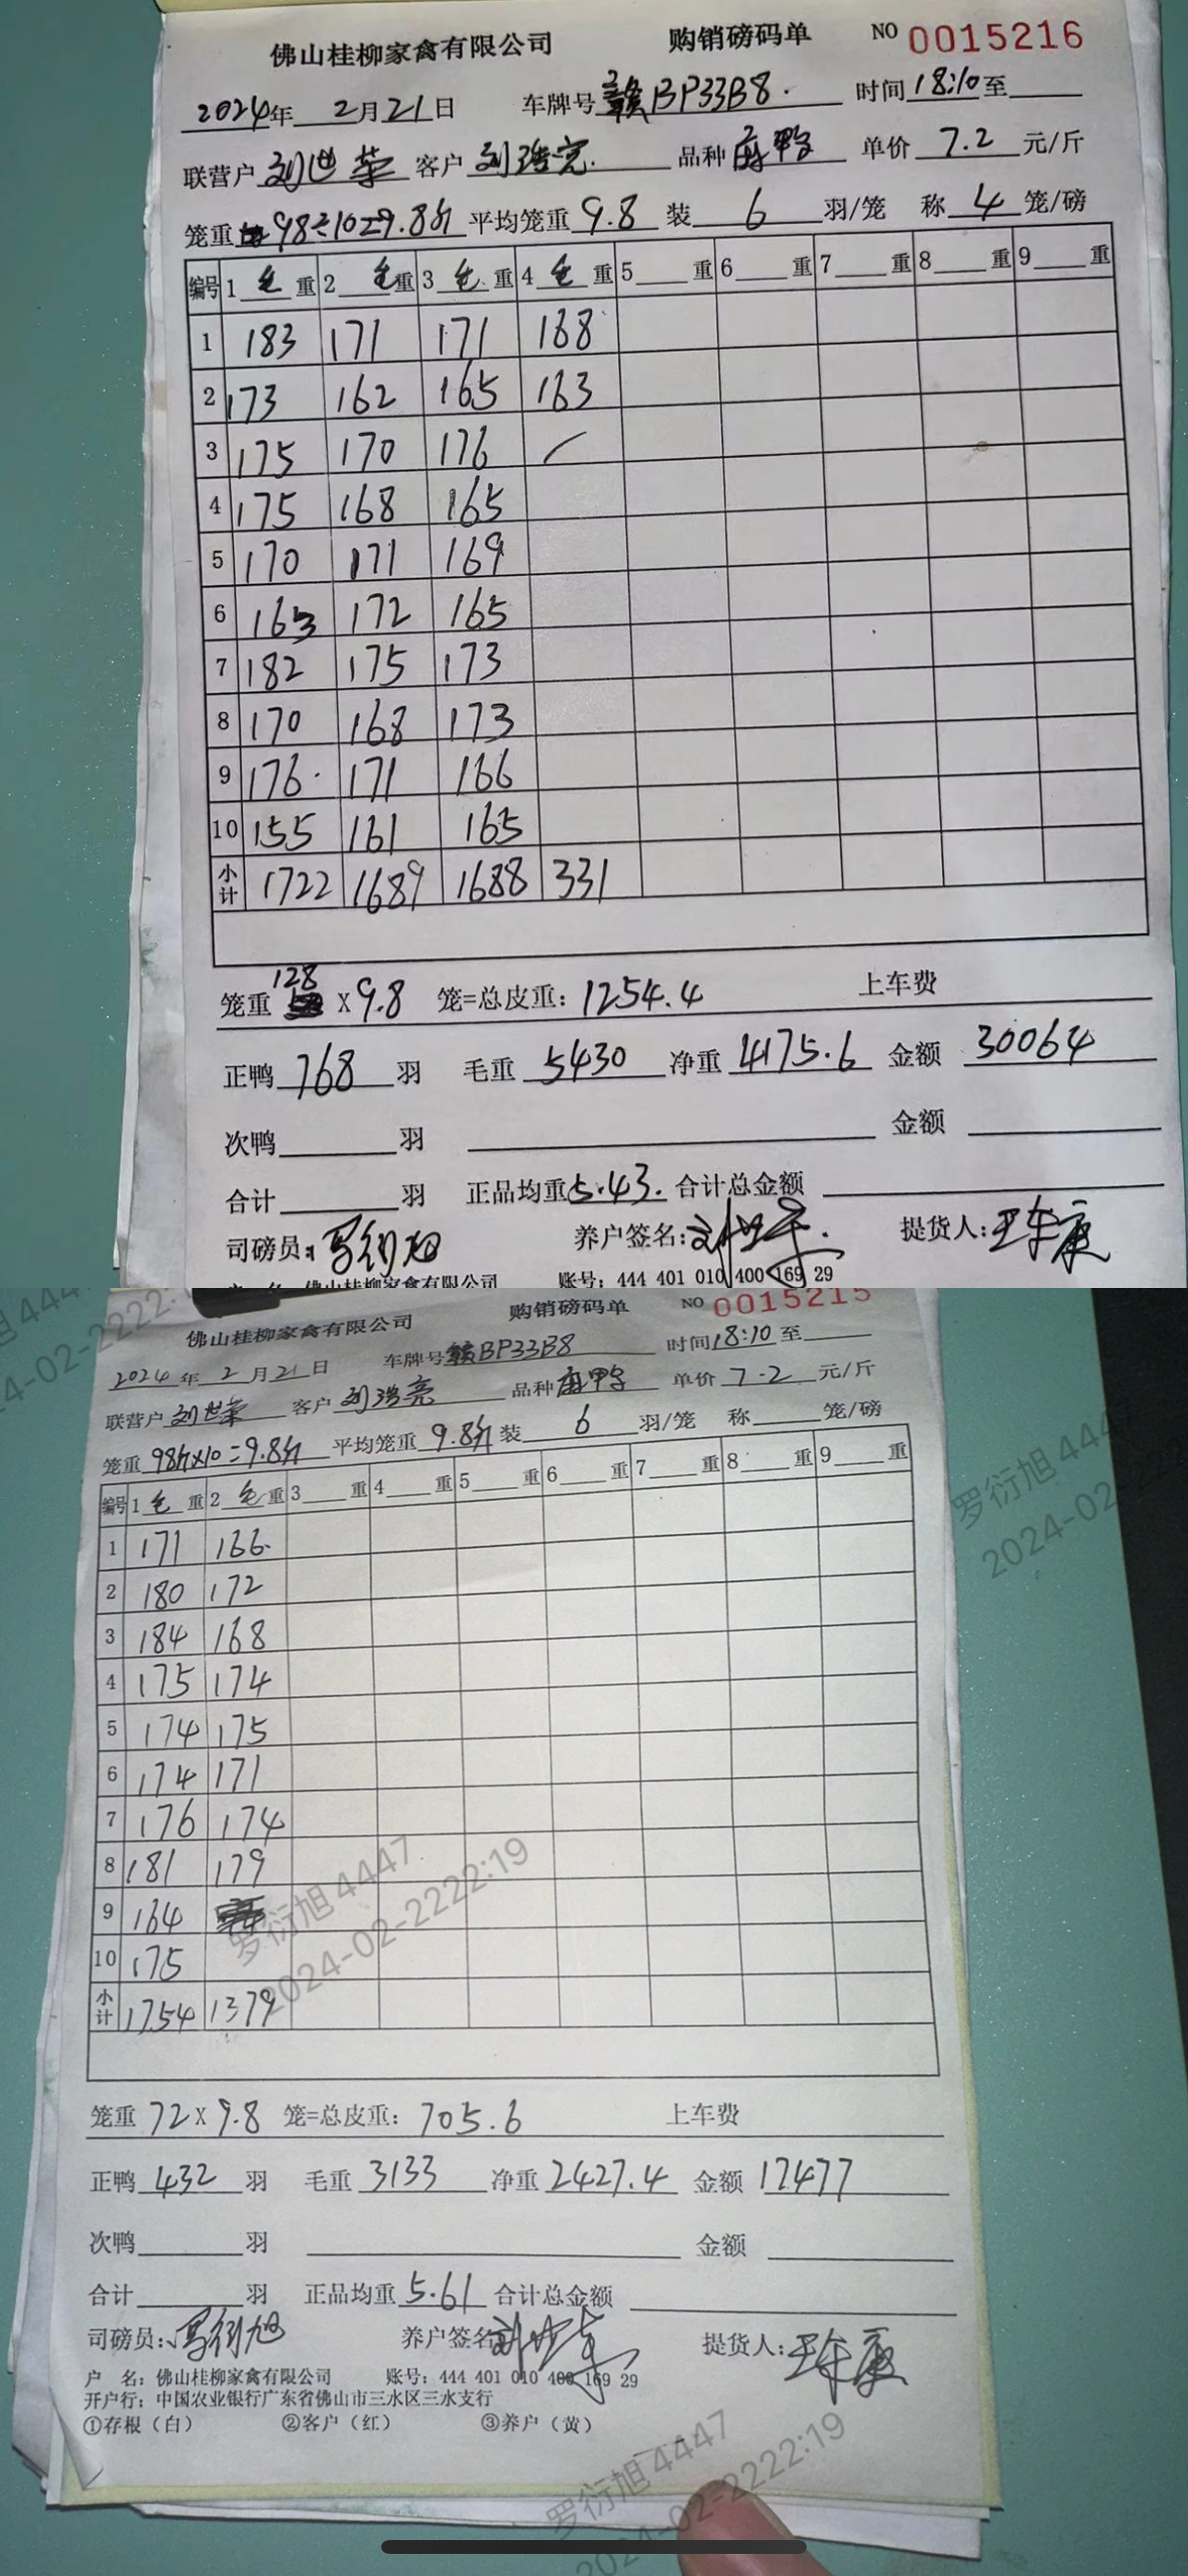 佛山桂柳家禽有限公司 购销磅码单 NO 0015216
2024年 2月21日 车牌号 赣BP33B8. 时间 18:10 至
联营户 刘世荣 客户 刘浩亮. 品种 麻鸭 单价 7.2 元/斤
笼重 98÷10=9.8斤 平均笼重 9.8 装 6 羽/笼 称 4 笼/磅
编号 1 毛 重 2 毛 重 3 毛 重 4 毛 重 5 重 6 重 7 重 8 重 9 重
1 183 171 171 168
2 173 162 165 163
3 175 170 176
4 175 168 165
5 170 171 169
6 163 172 165
7 182 175 173
8 170 168 173
9 176 171 166
10 155 161 165
小计 1722 1689 1688 331
笼重 128 X 9.8 笼=总皮重: 1254.4 上车费
正鸭 768 羽 毛重 5430 净重 4175.6 金额 30064
次鸭 羽 金额
合计 羽 正品均重 5.43. 合计总金额
司磅员: 罗衍旭 养户签名: 刘世荣. 提货人: 王车康
户 名: 佛山桂柳家禽有限公司 账号: 444 401 010 400 169 29
佛山桂柳家禽有限公司 购销磅码单 NO 0015215
2024年 2月21日 车牌号 赣BP33B8 时间 18:10 至
联营户 刘世荣 客户 刘浩亮 品种 麻鸭 单价 7.2 元/斤
笼重 98斤X10=9.8斤 平均笼重 9.8斤 装 6 羽/笼 称 笼/磅
编号 1 毛 重 2 毛 重 3 重 4 重 5 重 6 重 7 重 8 重 9 重
1 171 166
2 180 172
3 184 168
4 175 174
5 174 175
6 174 171
7 176 174
8 181 179
9 164
10 175
小计 1754 1379
笼重 72 X 9.8 笼=总皮重: 705.6 上车费
正鸭 432 羽 毛重 3133 净重 2427.4 金额 17477
次鸭 羽 金额
合计 羽 正品均重 5.61 合计总金额
司磅员: 罗衍旭 养户签名 刘世荣 提货人: 王车康
户 名: 佛山桂柳家禽有限公司 账号: 444 401 010 400 169 29
开户行: 中国农业银行广东省佛山市三水区三水支行
①存根（白） ②客户（红） ③养户（黄）
罗衍旭 4447
2024-02-22 22:19
罗衍旭 4447
2024-02-22 22:19